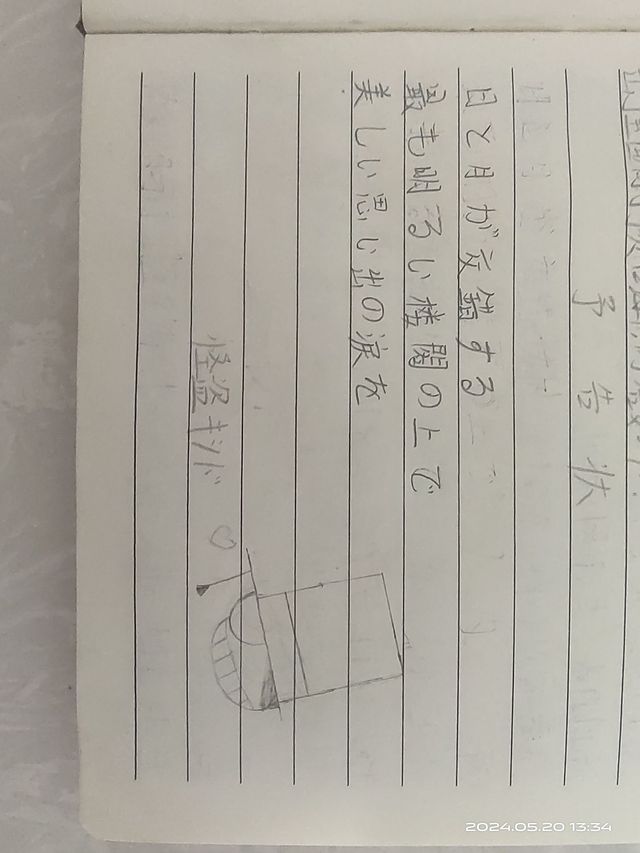 予告状
日と月が交錯する
最も明るい楼閣の上で
美しい思い出の涙を
怪盗キッド ♡
2024.05.20 13:34